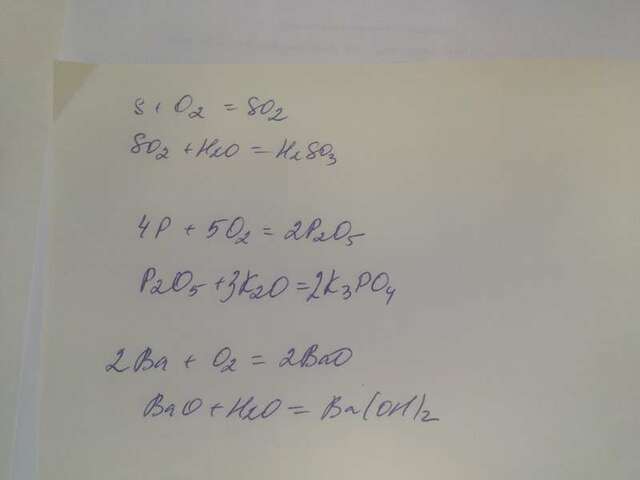 S + O2 = SO2
SO2 + H2O = H2SO3
4P + 5O2 = 2P2O5
P2O5 + 3K2O = 2K3PO4
2Ba + O2 = 2BaO
BaO + H2O = Ba(OH)2